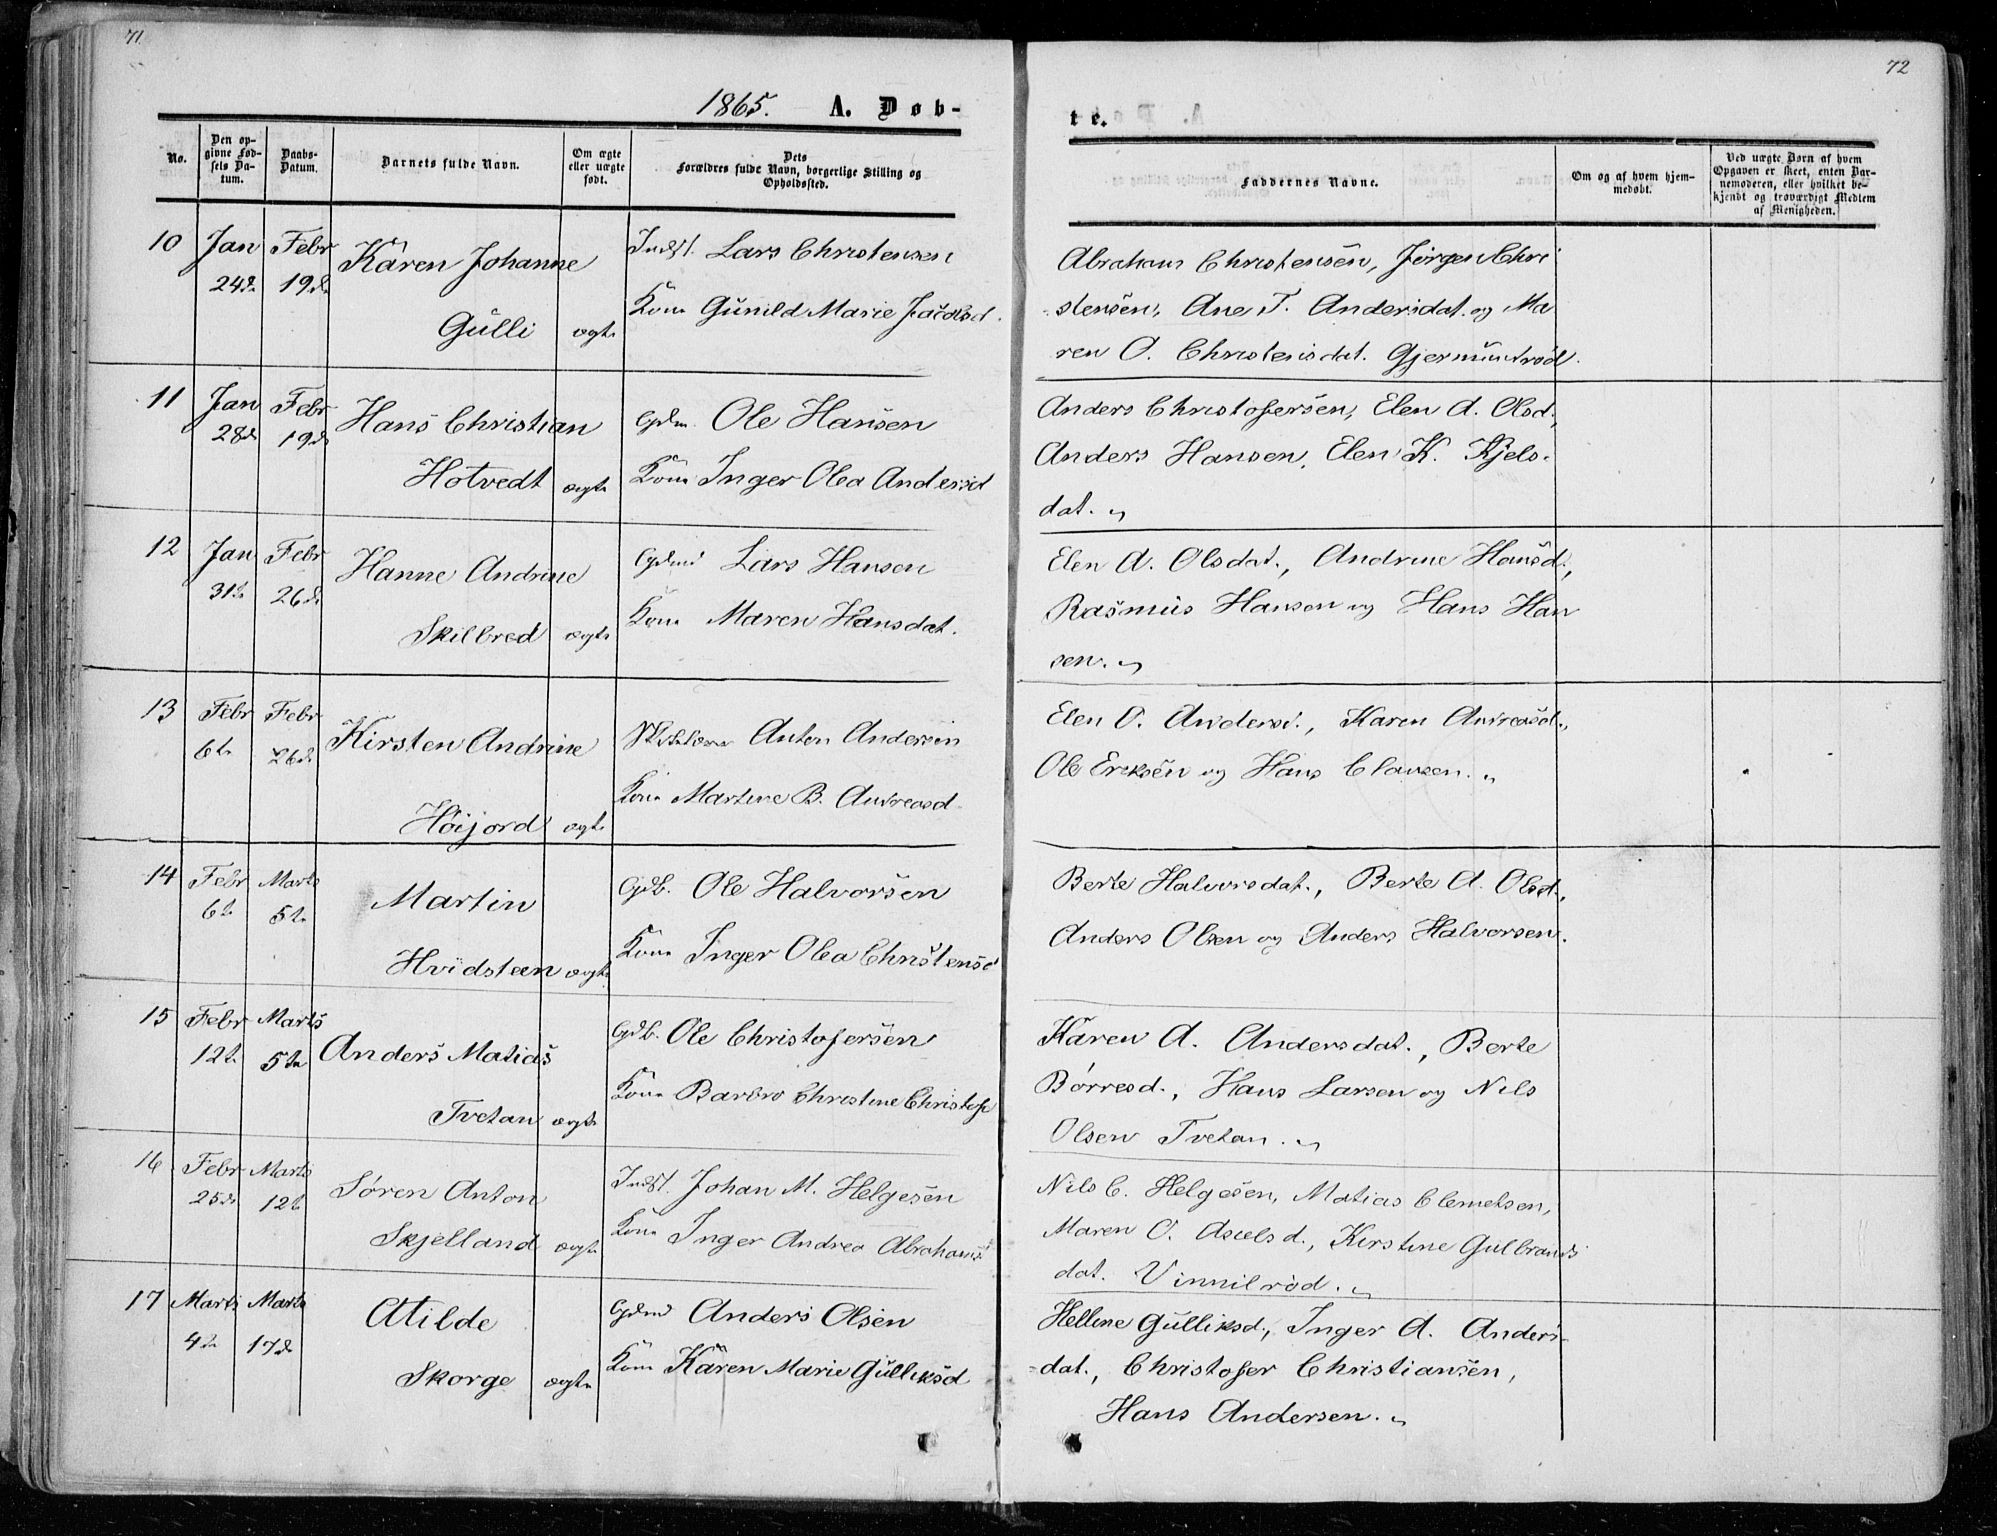 71
1865. A. Døb-
No.
Den op-
givne Fød-
sels Da-
tum.
Daabs-
Datum.
Barnets fulde Navn.
Om ægte
eller uægte
født.
Dets
Forældres fulde Navn, borgerlige Stilling og
Opholdssted.
10 Jan Febr Karen Johanne Indst. Lars Christensen
24de 19de
Gulli ægte Kone Gunild Marie Jacobsd.
11 Jan Febr Hans Christian Gdm. Ole Hansen
28de 19de
Hotvedt ægte Kone Inger Olea Andersd
12 Jan Febr Hanne Andrine Gdmd Lars Hansen
31te 26de
Skilbred ægte Kone Maren Hansdat.
13 Febr Febr Kirsten Andrine Anton Andersen
6te 26de
Høijord ægte Kone Martine B. Andreasd
14 Febr Marts Martin Gdb. Ole Halvorsen
6te 5te
Hvidsteen ægte Kone Inger Olea Christensd
15 Febr Marts Anders Matias Gdb. Ole Christofersen
12te 5te
Tvetan ægte Kone Barbro Christine Christofe
16 Febr Marts Søren Anton Indst. Johan M. Helgesen
25de 12te
Skjelland ægte Kone Inger Andrea Abrahamsd
17 Marts Marts Atilde Gdmd Anders Olsen
4de 17de
Skorge ægte Kone Karen Marie Gulliksd
72
te.
Faddernes Navne.
Om og af hvem hjem-
medøbt.
Ved uægte Børn af hvem
Opgaven er skeet, enten Bar-
nemoderen, eller hvilket be-
kjendt og troværdigt Medlem
af Menigheden.
Abraham Christensen, Jørgen Chri
-stensen, Ane T. Andersdat. og Ma
ren O. Christensdat. Gjermundrød.
Anders Christofersen, Elen A. Olsd,
Anders Hansen, Elen K. Kjels-
dat.
Elen A. Olsdat., Andrine Hansd.,
Rasmus Hansen og Hans Han
sen.
Elen O. Andersd., Karen Andreasd.,
Ole Ereksen og Hans Clausen.
Berte Halvorsdat., Berte A. Olsd.,
Anders Olsen og Anders Halvorsen.
Karen A. Andersdat., Berte
Børresd., Hans Larsen og Nils
Olsen Tvetan.
Nils C. Helgesen, Matias Clemetsen,
Maren O. Axelsd., Kirstine Gulbrands
dat. Vinnilrød.
Helline Gulliksd., Inger A. Anders-
-dat., Christofer Christiansen,
Hans Andersen.